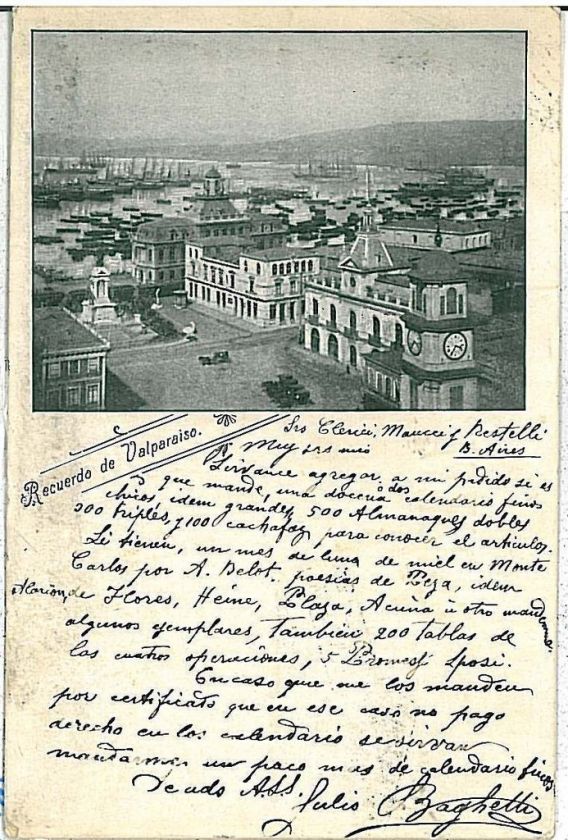 Recuerdo de Valparaiso.
Srs Clerici, Maucci y Restelli
B. Aires
Muy srs mio
Sirvance agregar a mi pidido si es
que mande, una docena o dos calendario finos
chicos, idem grandes, 500 Almanaques dobles
200 triples, y 100 cachafaz para conocer el articulos.
Si tienen, un mes de luna de miel en Monte
Carlos por A. Belot. poesias de Peza, idem
de Flores, Heine, Plaza, Acuña u otro
algunos ejemplares, Tambien 200 tablas de
las cuatros operaciones, 5 Promessi Sposi.
En caso que me los manden
por certificato que en ese caso no pago
derecho en los calendario se sirvan
un paco mas de calendario finos
De uds A.S.S. Julio Baghetti